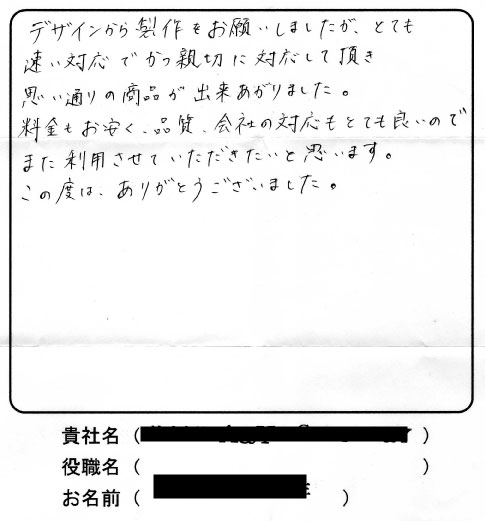 デザインから製作をお願いしましたが、とても
速い対応でかつ親切に対応して頂き
思い通りの商品が出来あがりました。
料金もお安く、品質、会社の対応もとても良いので
また利用させていただきたいと思います。
この度は、ありがとうございました。
貴社名（　　　）
役職名（　　　）
お名前（　　　）